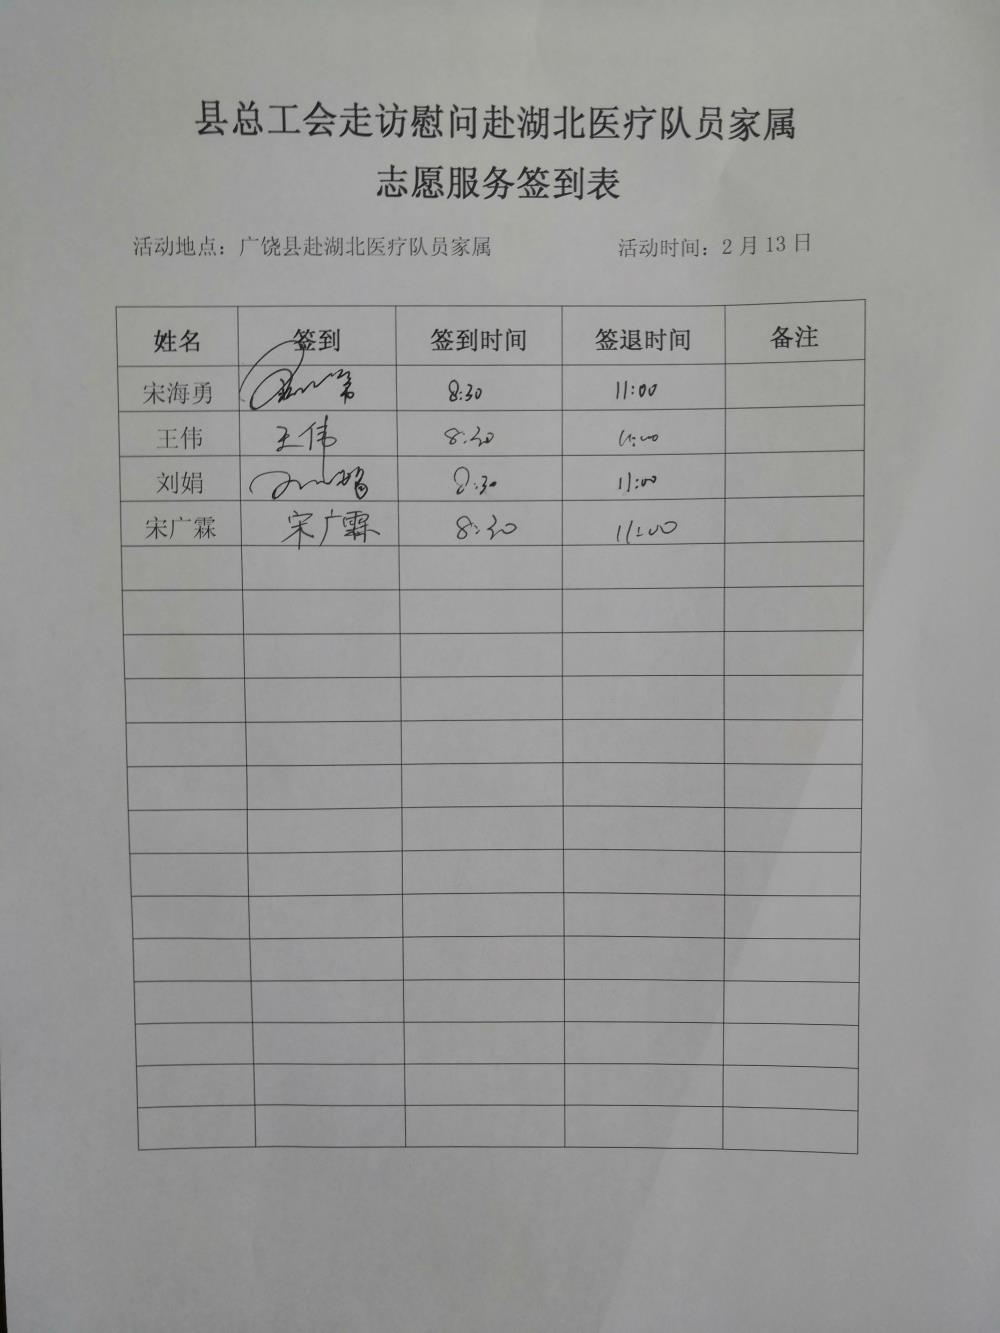 县总工会走访慰问赴湖北医疗队员家属
志愿服务签到表
活动地点：广饶县赴湖北医疗队员家属 活动时间：2月13日
姓名 签到 签到时间 签退时间 备注
宋海勇 8:30 11:00
王伟 王伟 8:30 11:00
刘娟 刘娟 8:30 11:00
宋广霖 宋广霖 8:30 11:00